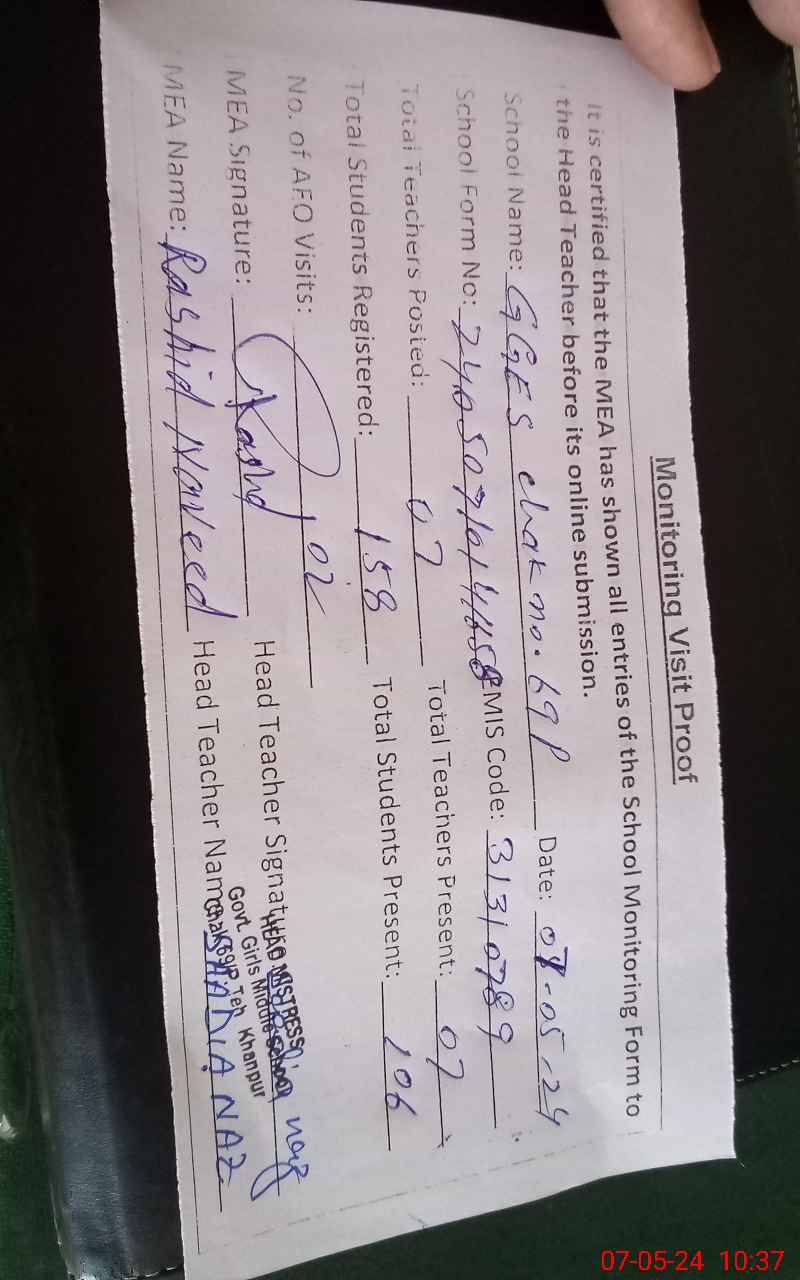 Monitoring Visit Proof
It is certified that the MEA has shown all entries of the School Monitoring Form to
the Head Teacher before its online submission.
School Name: GGES chak no. 69 P Date: 07-05-24
School Form No: EMIS Code: 31310789
Total Teachers Posted: 07 Total Teachers Present: 07
Total Students Registered: 158 Total Students Present: 106
No. of AEO Visits: 02
MEA Signature: Rashid Head Teacher Signature
HEAD MISTRESS
Govt. Girls Middle School
Chak 69/P Teh Khanpur
MEA Name: Rashid Naveed Head Teacher Name SHADIA NAZ
07-05-24 10:37